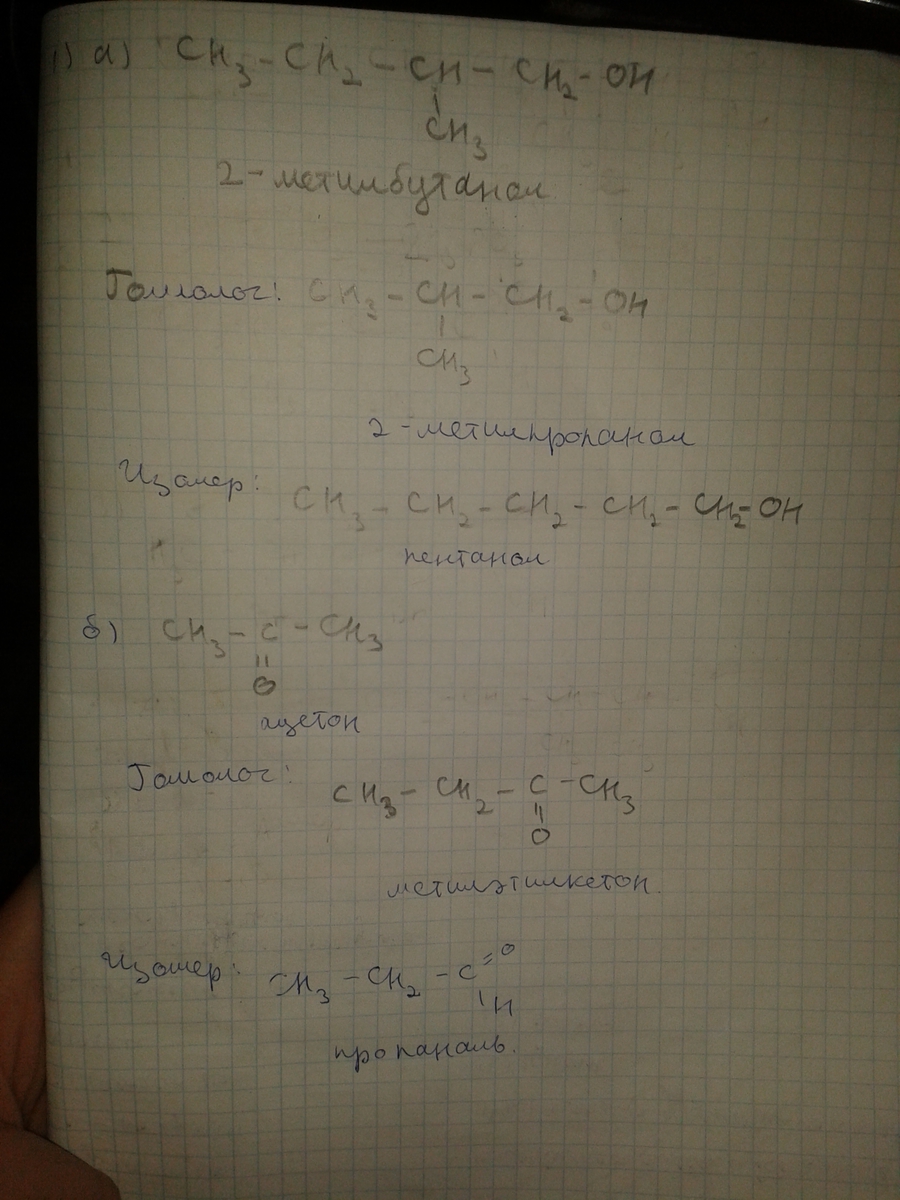 1) а) CH3 – CH2 – CH – CH2 – OH
CH3
2-метилбутанол
Гомолог: CH3 – CH – CH2 – OH
CH3
2-метилпропанол
Изомер: CH3 – CH2 – CH2 – CH2 – CH2 – OH
пентанол
б) CH3 – C – CH3
O
ацетон
Гомолог: CH3 – CH2 – C – CH3
O
метилэтилкетон.
Изомер: CH3 – CH2 – C = O
H
пропаналь.